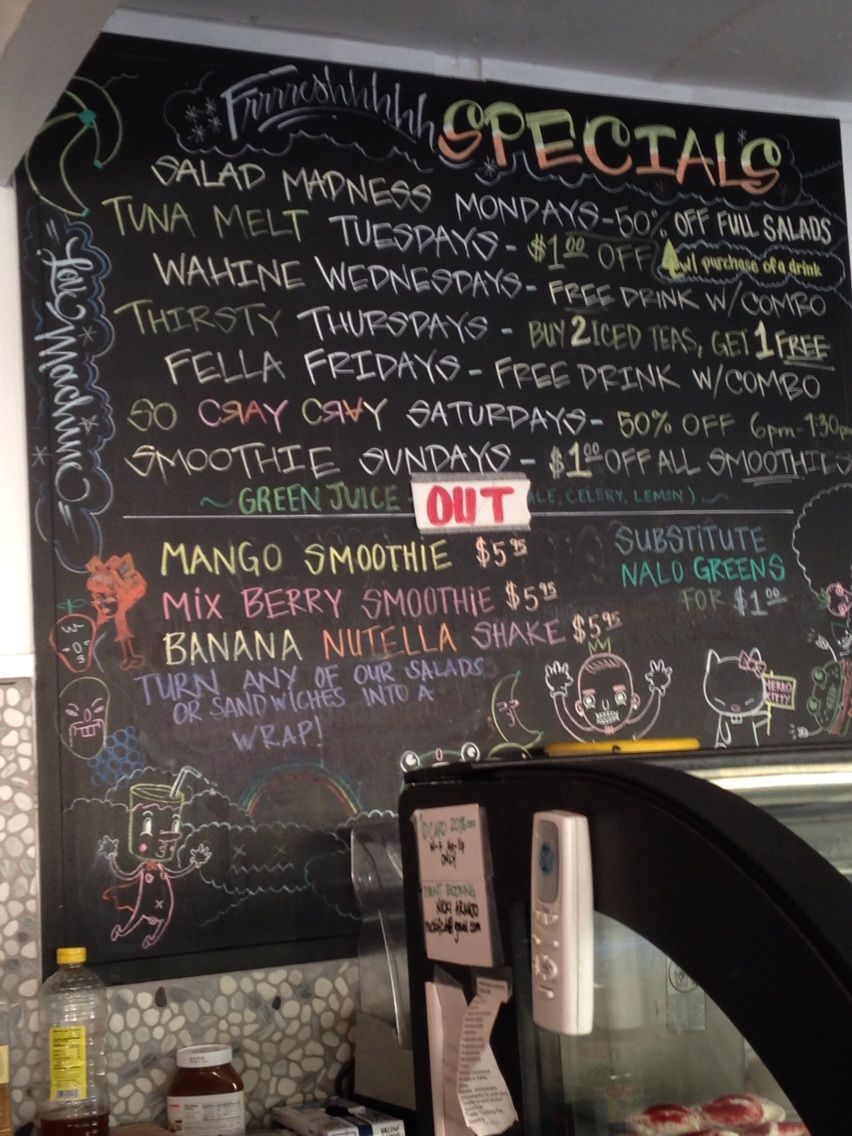 Frrrreshhhhhh SPECIALS
SALAD MADNESS MONDAYS - 50% OFF FULL SALADS
TUNA MELT TUESDAYS - $1.00 OFF w/ purchase of a drink
WAHINE WEDNESDAYS - FREE DRINK W/COMBO
THIRSTY THURSDAYS - BUY 2 ICED TEAS, GET 1 FREE
FELLA FRIDAYS - FREE DRINK W/COMBO
SO CRAY CRAY SATURDAYS - 50% OFF 6pm-
SMOOTHIE SUNDAYS - $1.00 OFF ALL SMOOTHIES
~ GREEN JUICE OUT ALE, CELERY, LEMON) ~
MANGO SMOOTHIE $5.95
MIX BERRY SMOOTHIE $5.95
BANANA NUTELLA SHAKE $5.95
SUBSTITUTE
NALO GREENS
FOR $1.00
TURN ANY OF OUR SALADS
OR SANDWICHES INTO A
WRAP!
HELLO
KITTY
20%
ONLY
EVENT BOOKING